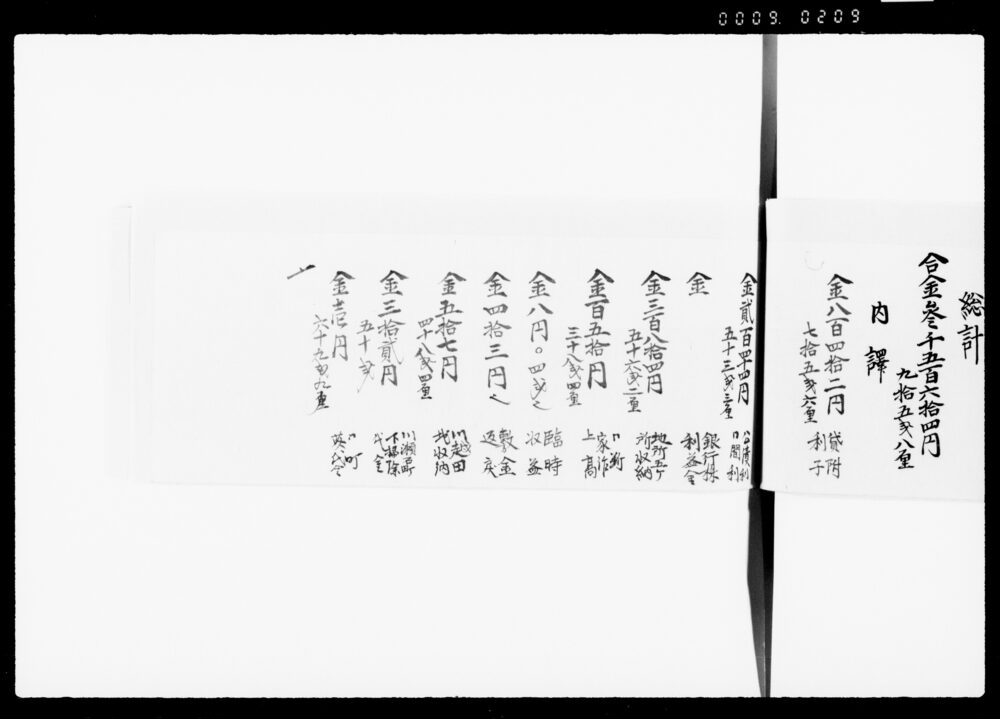 0009 0209
総計
合金参千五百六拾四円
九拾五銭八厘
内譯
金八百四拾二円
七拾五銭六厘
貸附
利子
金貳百四十四円
五十三銭三厘
公債利
金
銀行株
利益金
金三百八拾四円
五十六銭二厘
地所
所収納
金百五拾円
三十八銭四厘
家作
上高
金八円〇四銭
臨時
収益
金四拾三円
敷金
返戻
金五拾七円
四十八銭四厘
川越田
収納
金三拾貳円
五十銭
川瀬
代金
金壱円
六十九銭九厘
〆